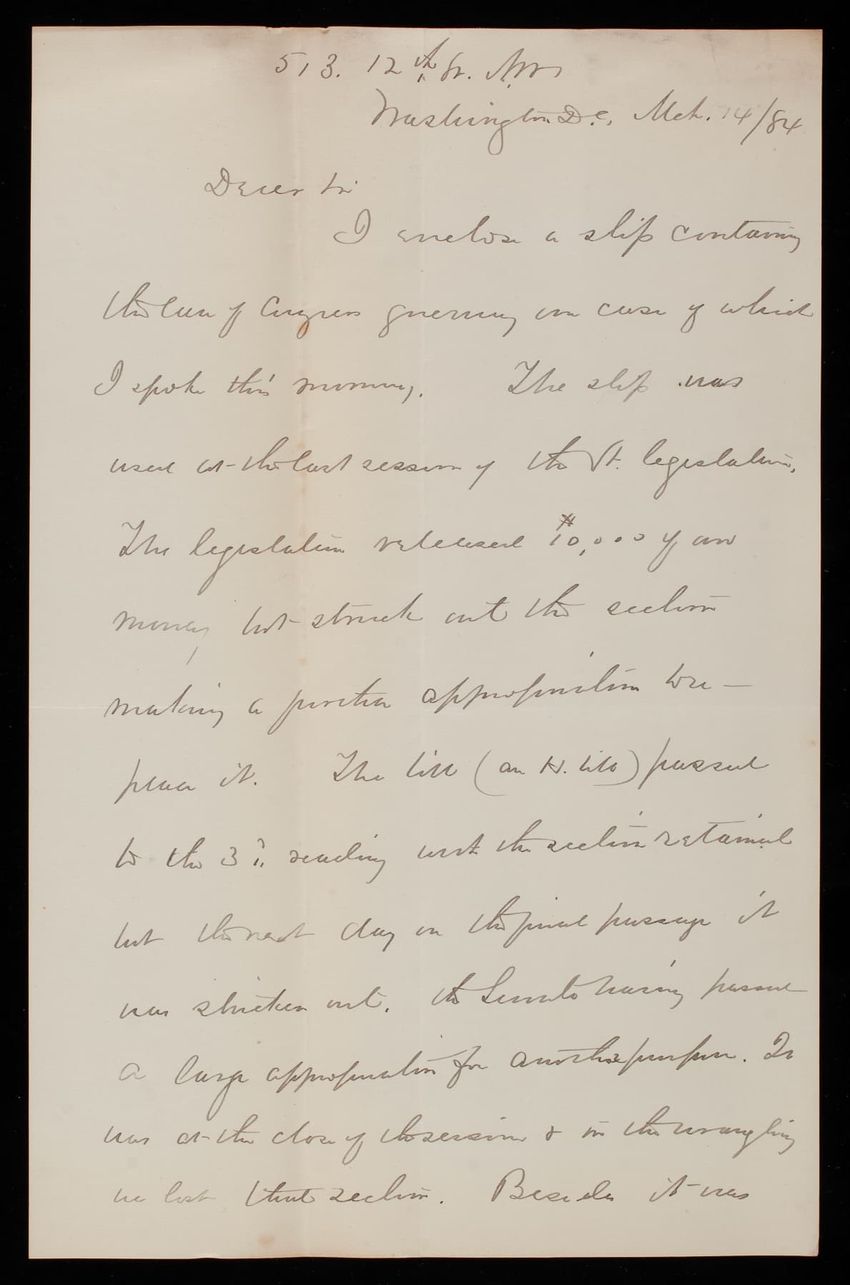 513. 12th St. N.W.
Washington D.C. Mch. 14/84
Dear Sir
I enclose a slip containing
the law of Congress governing our case of which
I spoke this morning. The slip was
used at the last session of the Vt. legislature.
The legislature released $10,000 of our
money, but struck out the section
making a further appropriation to re-
place it. The bill (an H. bill) passed
to the 3d. reading with the section retained
but the next day on the final passage it
was stricken out. the Senate having passed
a large appropriation for another purpose. It
was at the close of the session & in the wrangling
we lost that section. Besides it was